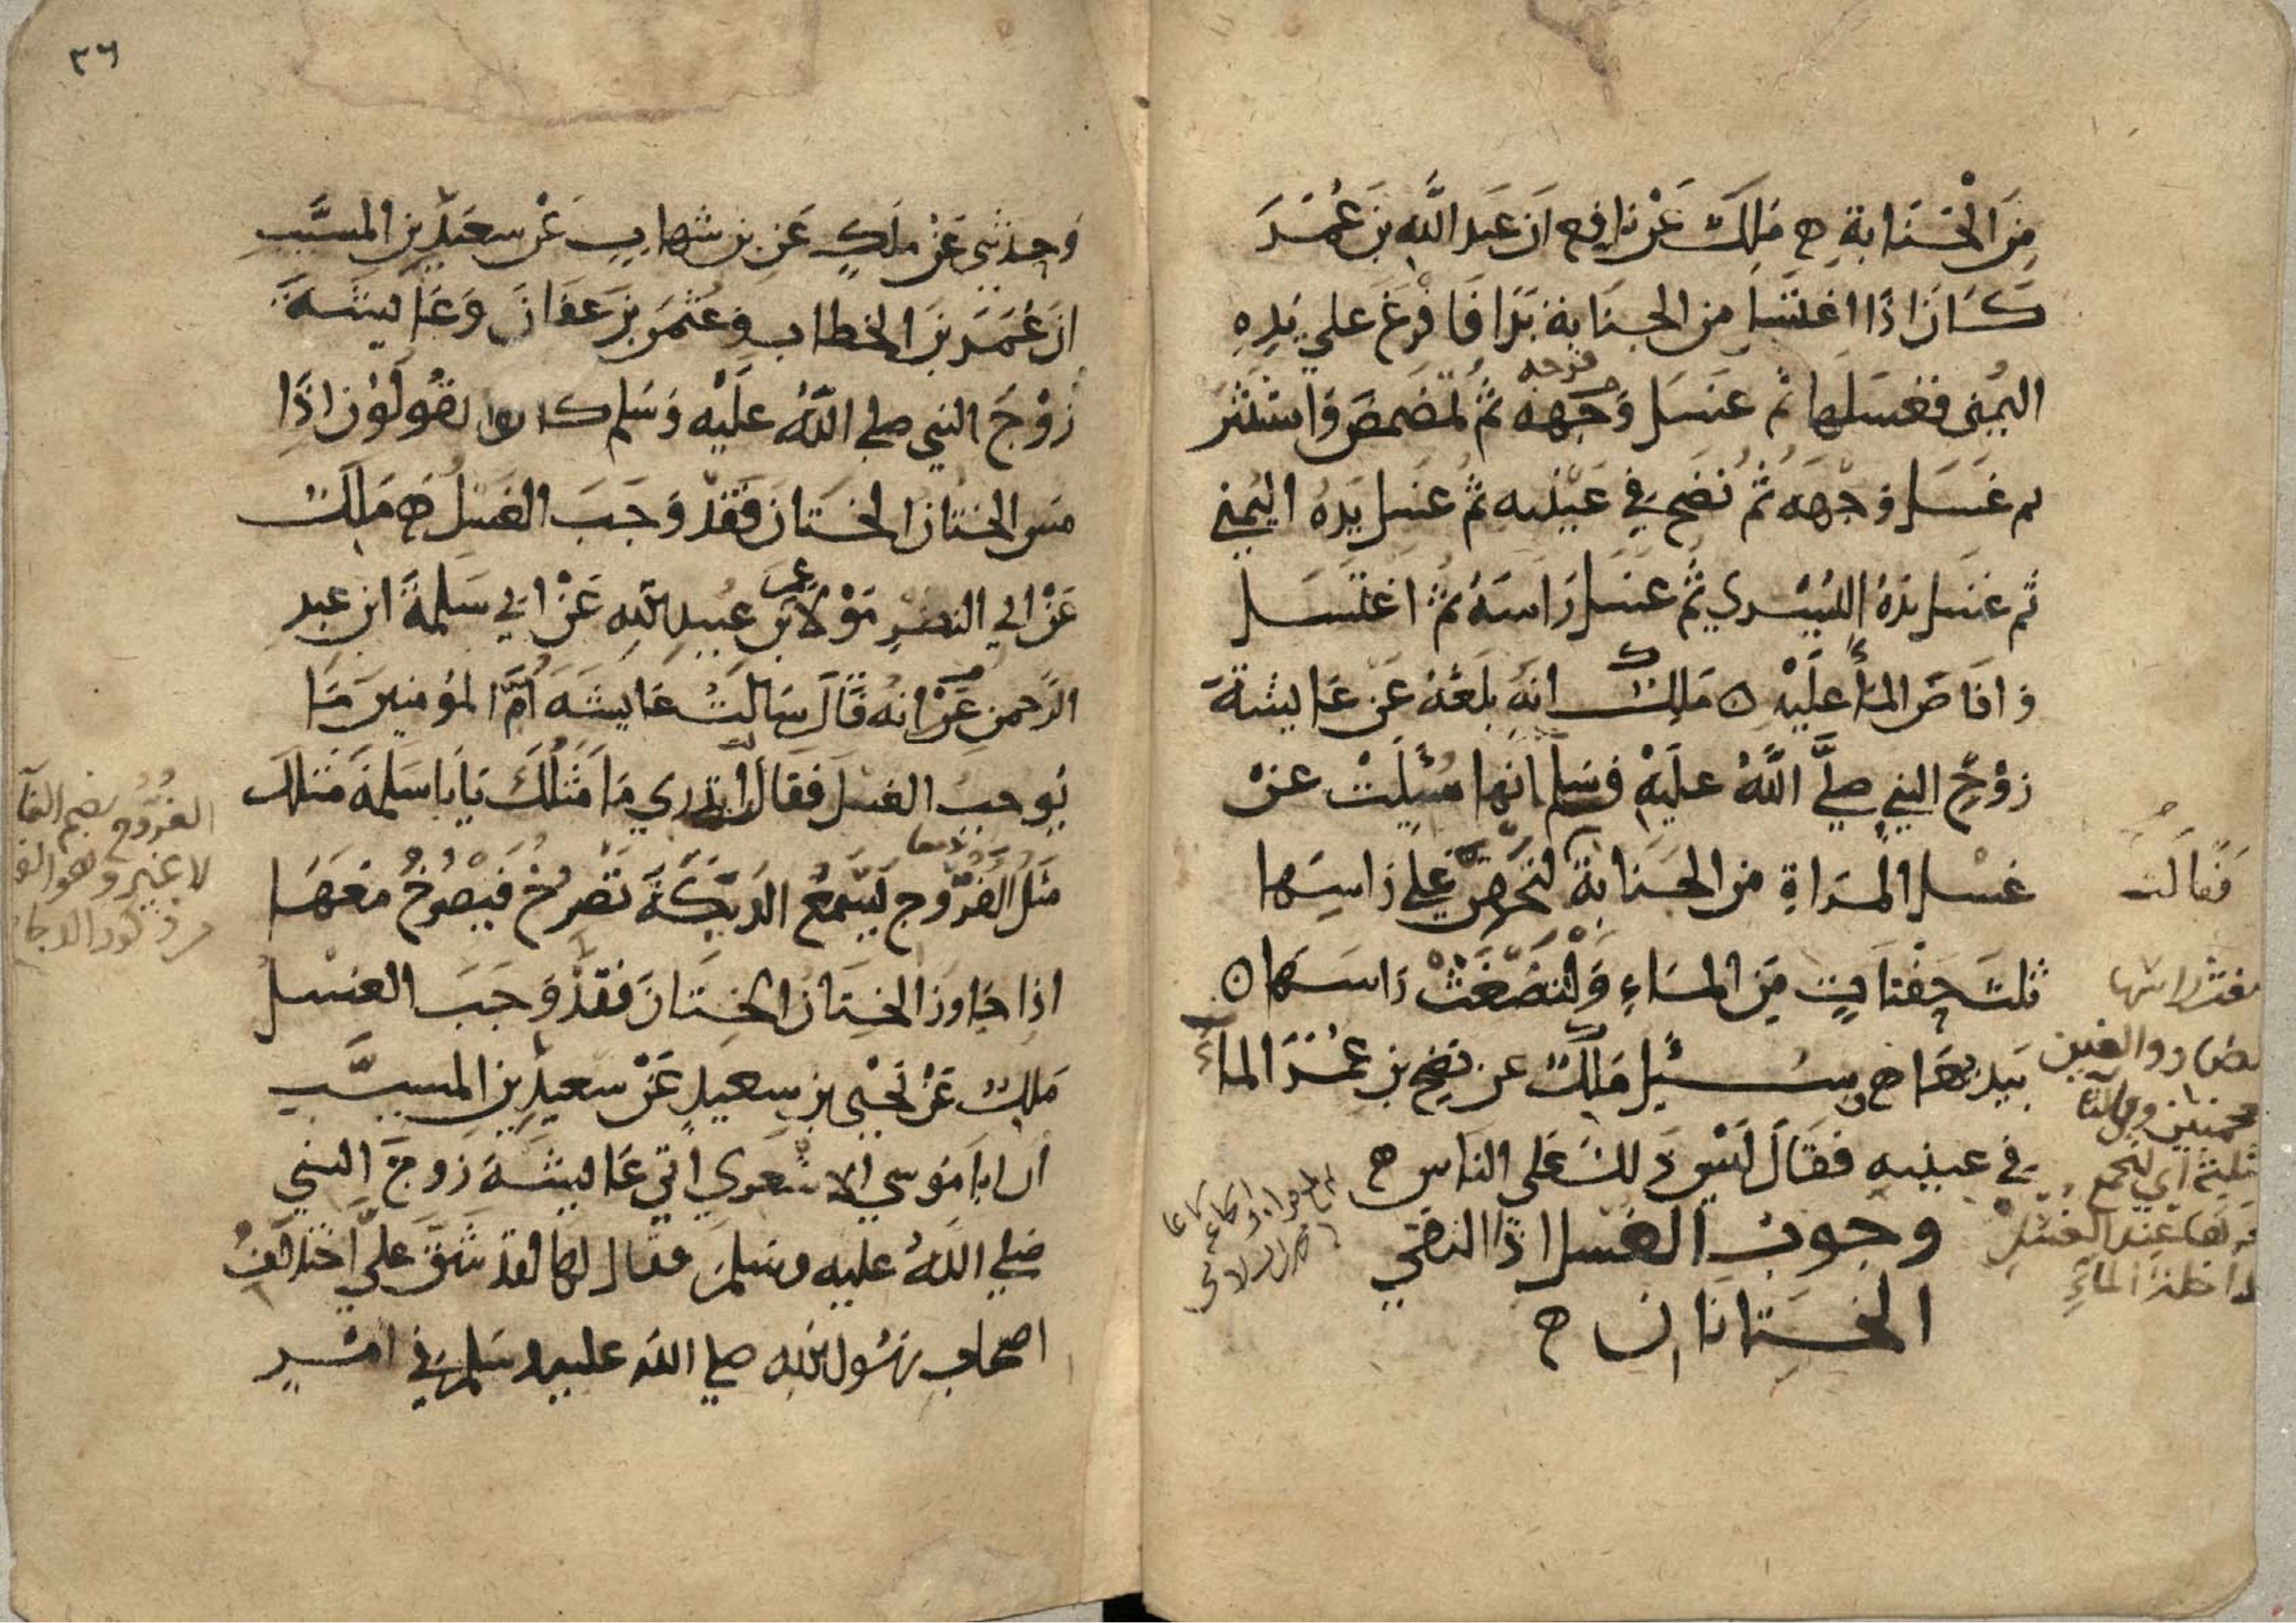 من الجنابة ه ملك عن نافع ان عبد الله بن عمر
كان اذا اغتسل من الجنابة بدا فافرغ علي يده
اليمني فغسلها ثم غسل وجهه ثم تمضمض واستنثر
فرجه
ثم غسل وجهه ثم نضح في عينيه ثم غسل يده اليمني
ثم غسل يده اليسري ثم غسل راسه ثم اغتسل
وافاض الماء عليه ه ملك انه بلغه عن عايشة
زوج النبي صلي الله عليه وسلم انها سئلت عن
غسل المراة من الجنابة لتحفن علي راسها
فقالت
ثلث حفنات من الماء ولتضغث راسها ه
بيديها ه وسئل ملك عن نضح بن عمر الماء
في عينيه فقال ليس ذلك علي الناس ه
وجوب الغسل اذا التقي
الختانان ه
٣٦
وحدثني عن ملك عن بن شهاب عن سعيد بن المسيب
ان عمر بن الخطاب وعثمن بن عفان وعايشة
زوج النبي صلي الله عليه وسلم كانوا يقولون اذا
مس الختان الختان فقد وجب الغسل ه ملك
عن ابي النضر مولا بن عبيد الله عن ابي سلمة ابن عبد
عمر
الرحمن عن انه قال سالت عايشه ام المومنين ما
يوجب الغسل فقال اتدري ما مثلك يابا سلمة مثلك
مثل الفروج يسمع الديكة تصرخ فيصرخ معها
اذا جاوز الختان الختان فقد وجب الغسل
ملك عن يحيي بن سعيد عن سعيد بن المسيب
ان ابا موسي الاشعري اتي عايشة زوج النبي
صلي الله عليه وسلم فقال لها لقد شق علي اختلاف
اصحاب رسول الله صلي الله عليه وسلم في امر
الفروج بضم الفا
لا غير وهو